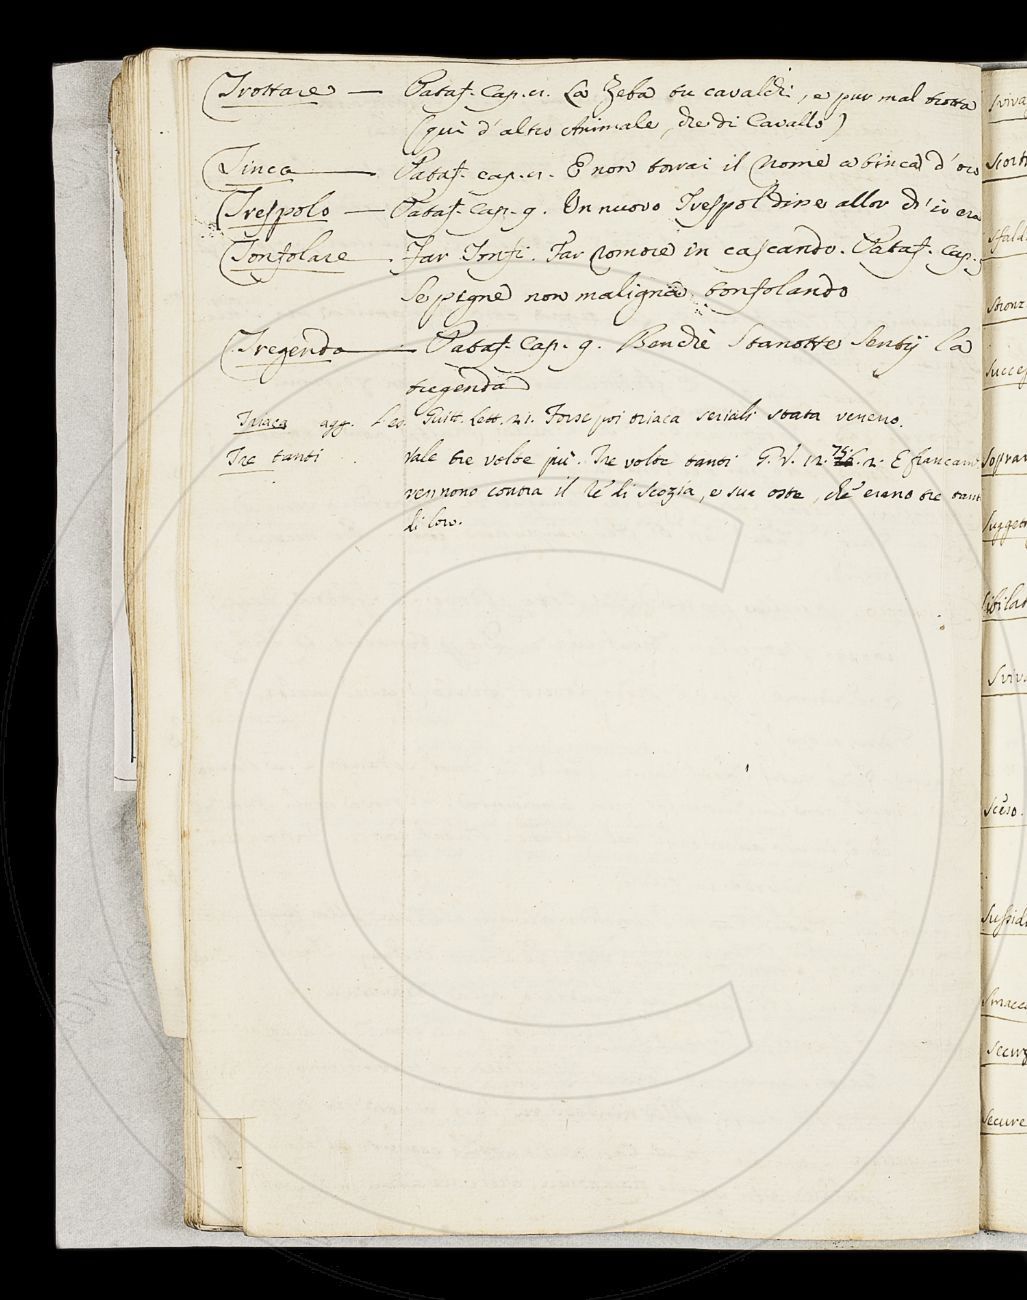 Trottare — Pataf. Cap. 11. La Zeba tu cavalchi, e pur mal trotta
(quì d'altro Animale, che di Cavallo)
Tinca — Pataf. cap. 11. E non torrai il nome a tinca d'oro
Trespolo — Pataf. Cap. 9. Un nuovo Trespol disse allor ch'io era
Tonfolare . Far Tonfi. Far romore in cascando. Pataf. Cap.
Se pigne non maligna tonfolando
Tregenda — Pataf. Cap. 9. Benchè Stanotte Sentij la
tregenda
Triaca agg. Guitt. Lett. 21. Forse poi triaca seriali stata veneno.
Tre tanti . Vale tre volte più. Tre volte tanti G. V. 12. 75. 2. E francam.
vennono contra il Rè di Scozia, e sua oste, chè erano tre tant
di loro.
Sviva
Scort
Sfald
Stronz
Succes
Sopran
Suggett
Sibilat
Sviv
Sceso.
Sussid
Smacc
Secur
Secure